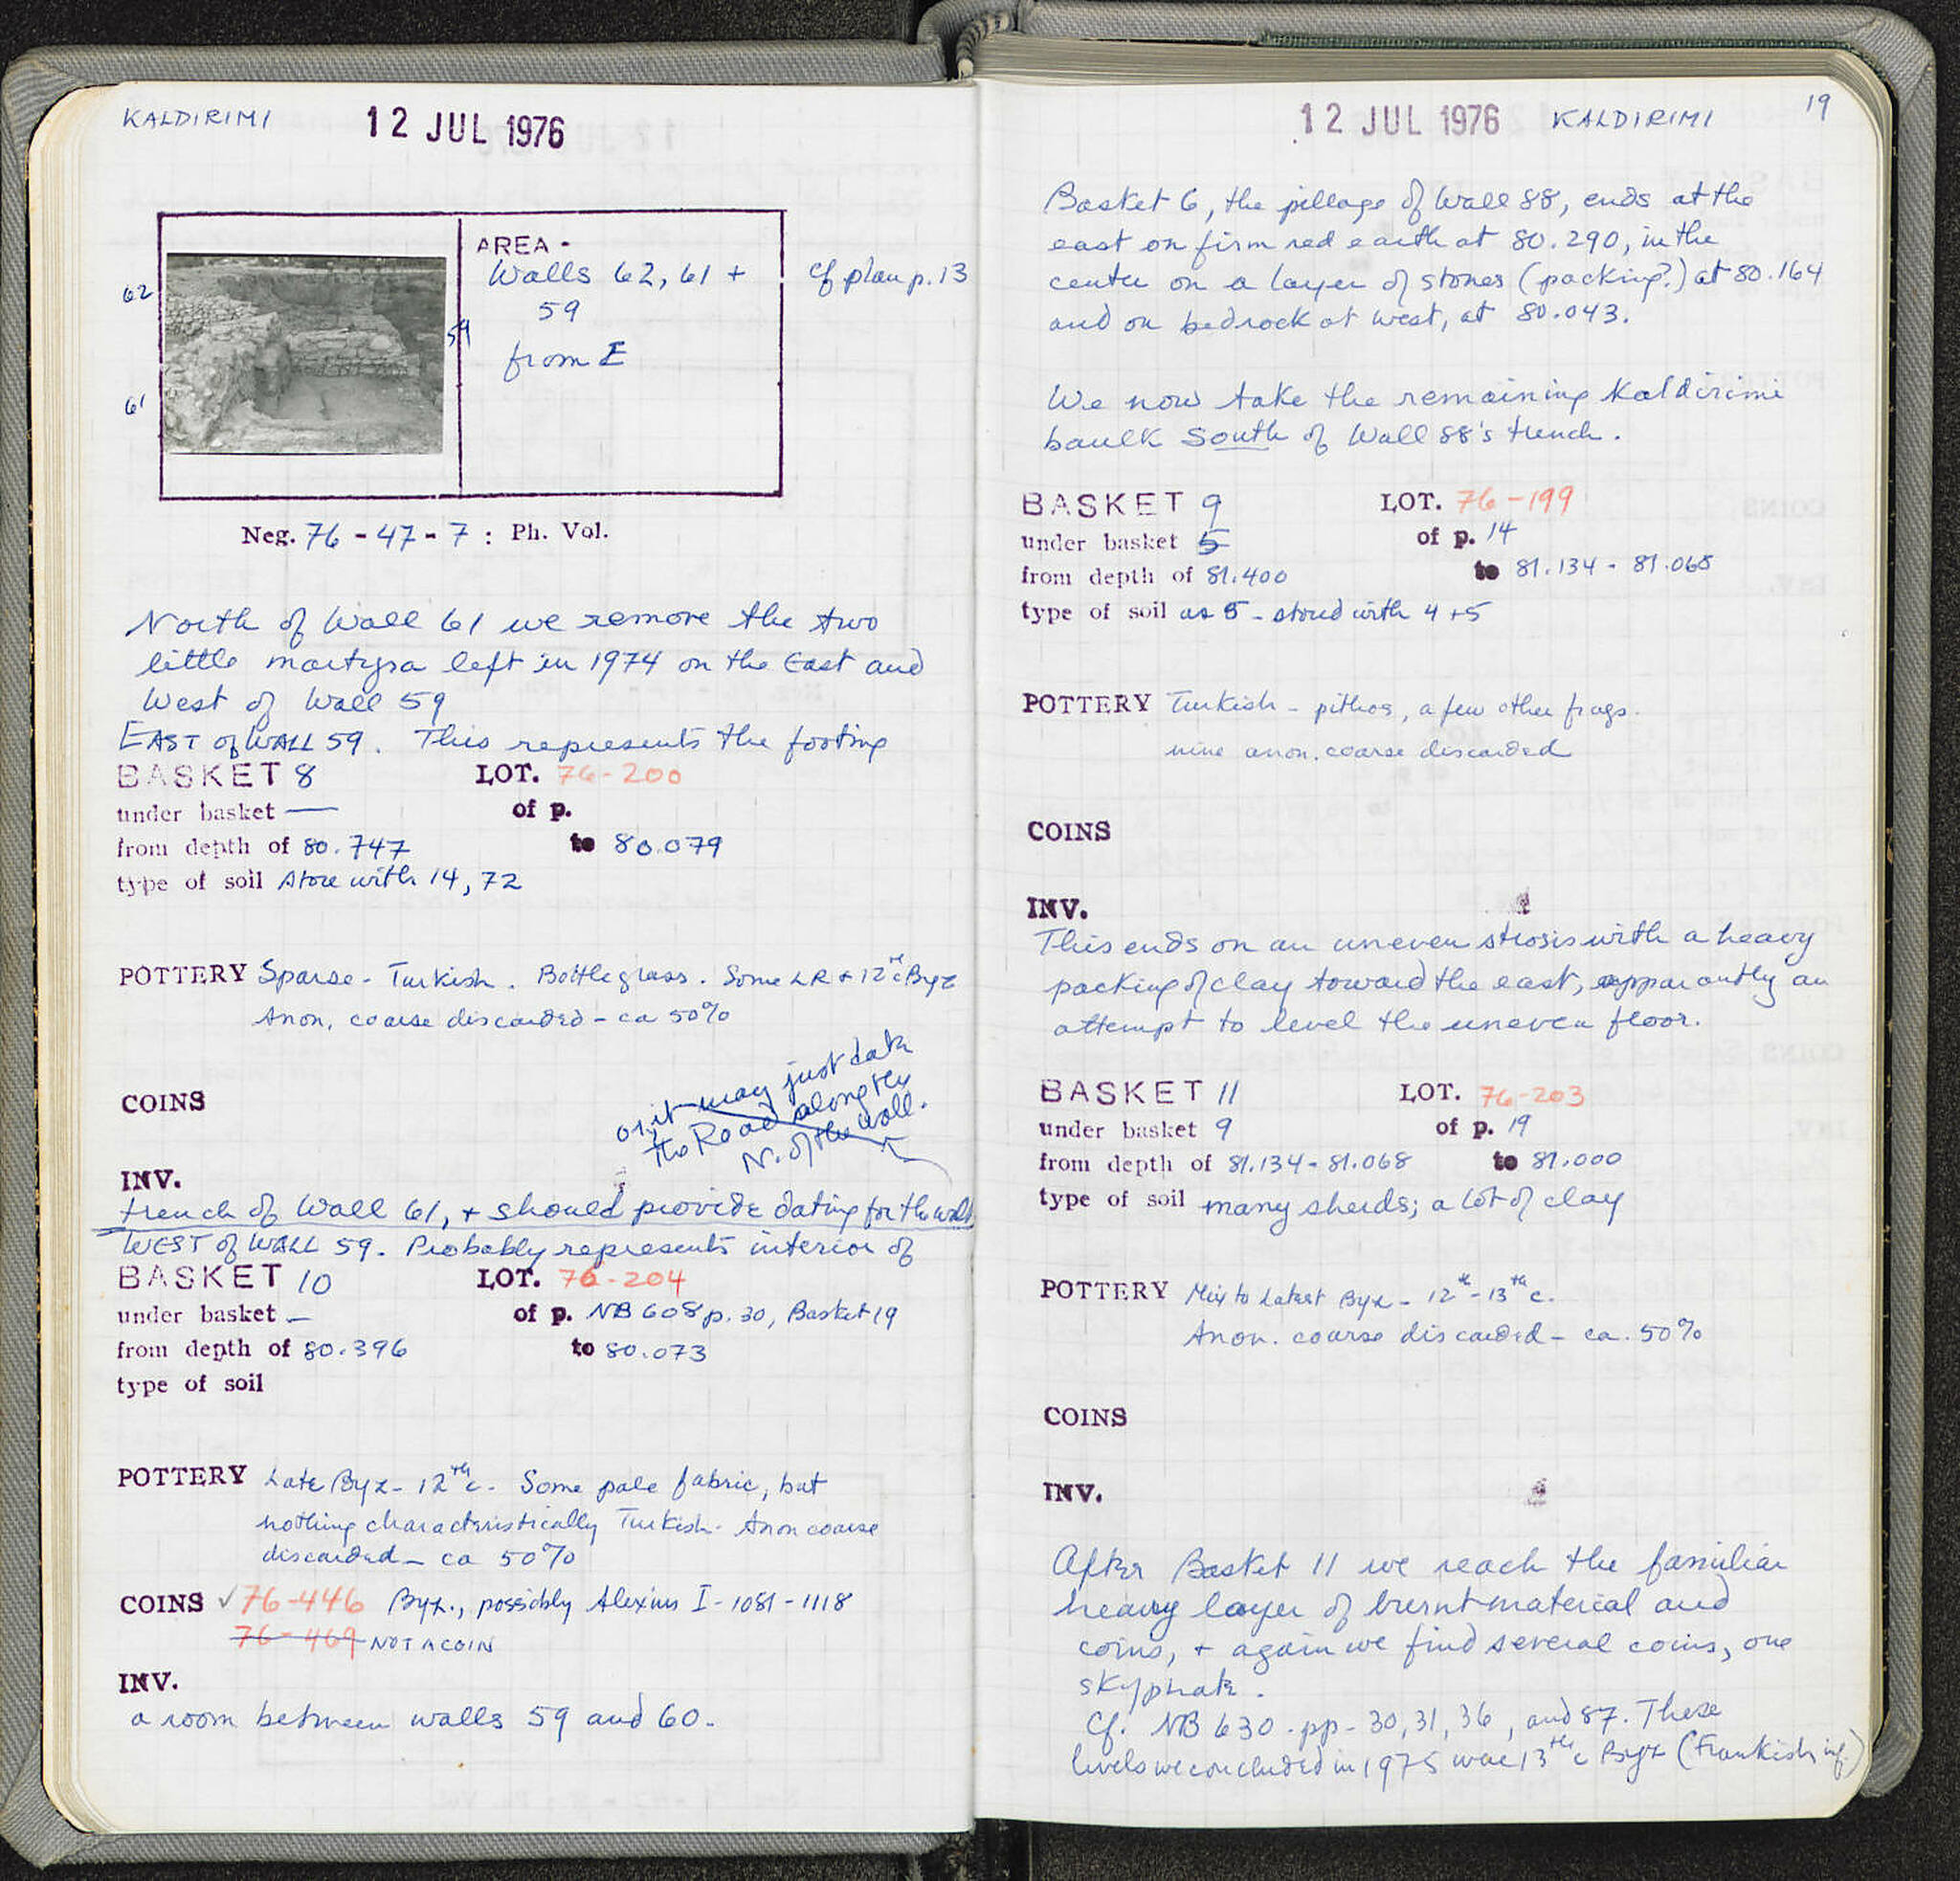 KALDIRIMI 12 JUL 1976
AREA -
Walls 62, 61 +
59
from E
cf plan p. 13
62
59
61
Neg. 76 - 47 - 7 : Ph. Vol.
North of Wall 61 we remove the two
little martyra left in 1974 on the East and
West of Wall 59
EAST of WALL 59. This represents the footing
BASKET 8 LOT. 76-200
under basket — of p.
from depth of 80.747 to 80.079
type of soil store with 14, 72
POTTERY Sparse - Turkish. Bottle glass. Some LR + 12th c Byz
Anon. coarse discarded - ca 50%
COINS
or it may just date
the Road along the
N. of the wall.
INV.
trench of Wall 61, + should provide dating for the wall
WEST of WALL 59. Probably represents interior of
BASKET 10 LOT. 76-204
under basket — of p. NB 608 p. 30, Basket 19
from depth of 80.396 to 80.073
type of soil
POTTERY Late Byz - 12th c. Some pale fabric, but
nothing characteristically Turkish. Anon coarse
discarded - ca 50%
COINS ✓ 76-446 Byz., possibly Alexius I - 1081 - 1118
76-469 NOT A COIN
INV.
a room between walls 59 and 60.
12 JUL 1976 KALDIRIMI 19
Basket 6, the pillage of Wall 88, ends at the
east on firm red earth at 80.290, in the
center on a layer of stones (packing?) at 80.164
and on bedrock at west, at 80.043.
We now take the remaining Kaldirimi
baulk South of Wall 88's trench.
BASKET 9 LOT. 76-199
under basket 5 of p. 14
from depth of 81.400 to 81.134 - 81.068
type of soil as 5 - stored with 4 + 5
POTTERY Turkish - pithos, a few other frags.
nine anon. coarse discarded
COINS
INV.
This ends on an uneven strosis with a heavy
packing of clay toward the east, apparantly an
attempt to level the uneven floor.
BASKET 11 LOT. 76-203
under basket 9 of p. 19
from depth of 81.134 - 81.068 to 81.000
type of soil many sherds; a lot of clay
POTTERY Mix to Latest Byz - 12th - 13th c.
Anon. coarse discarded - ca. 50%
COINS
INV.
After Basket 11 we reach the familiar
heavy layer of burnt material and
coins, + again we find several coins, one
skyphate.
Cf. NB 630 - pp - 30, 31, 36, and 87. These
levels we concluded in 1975 were 13th c Byz (Frankish inf.)